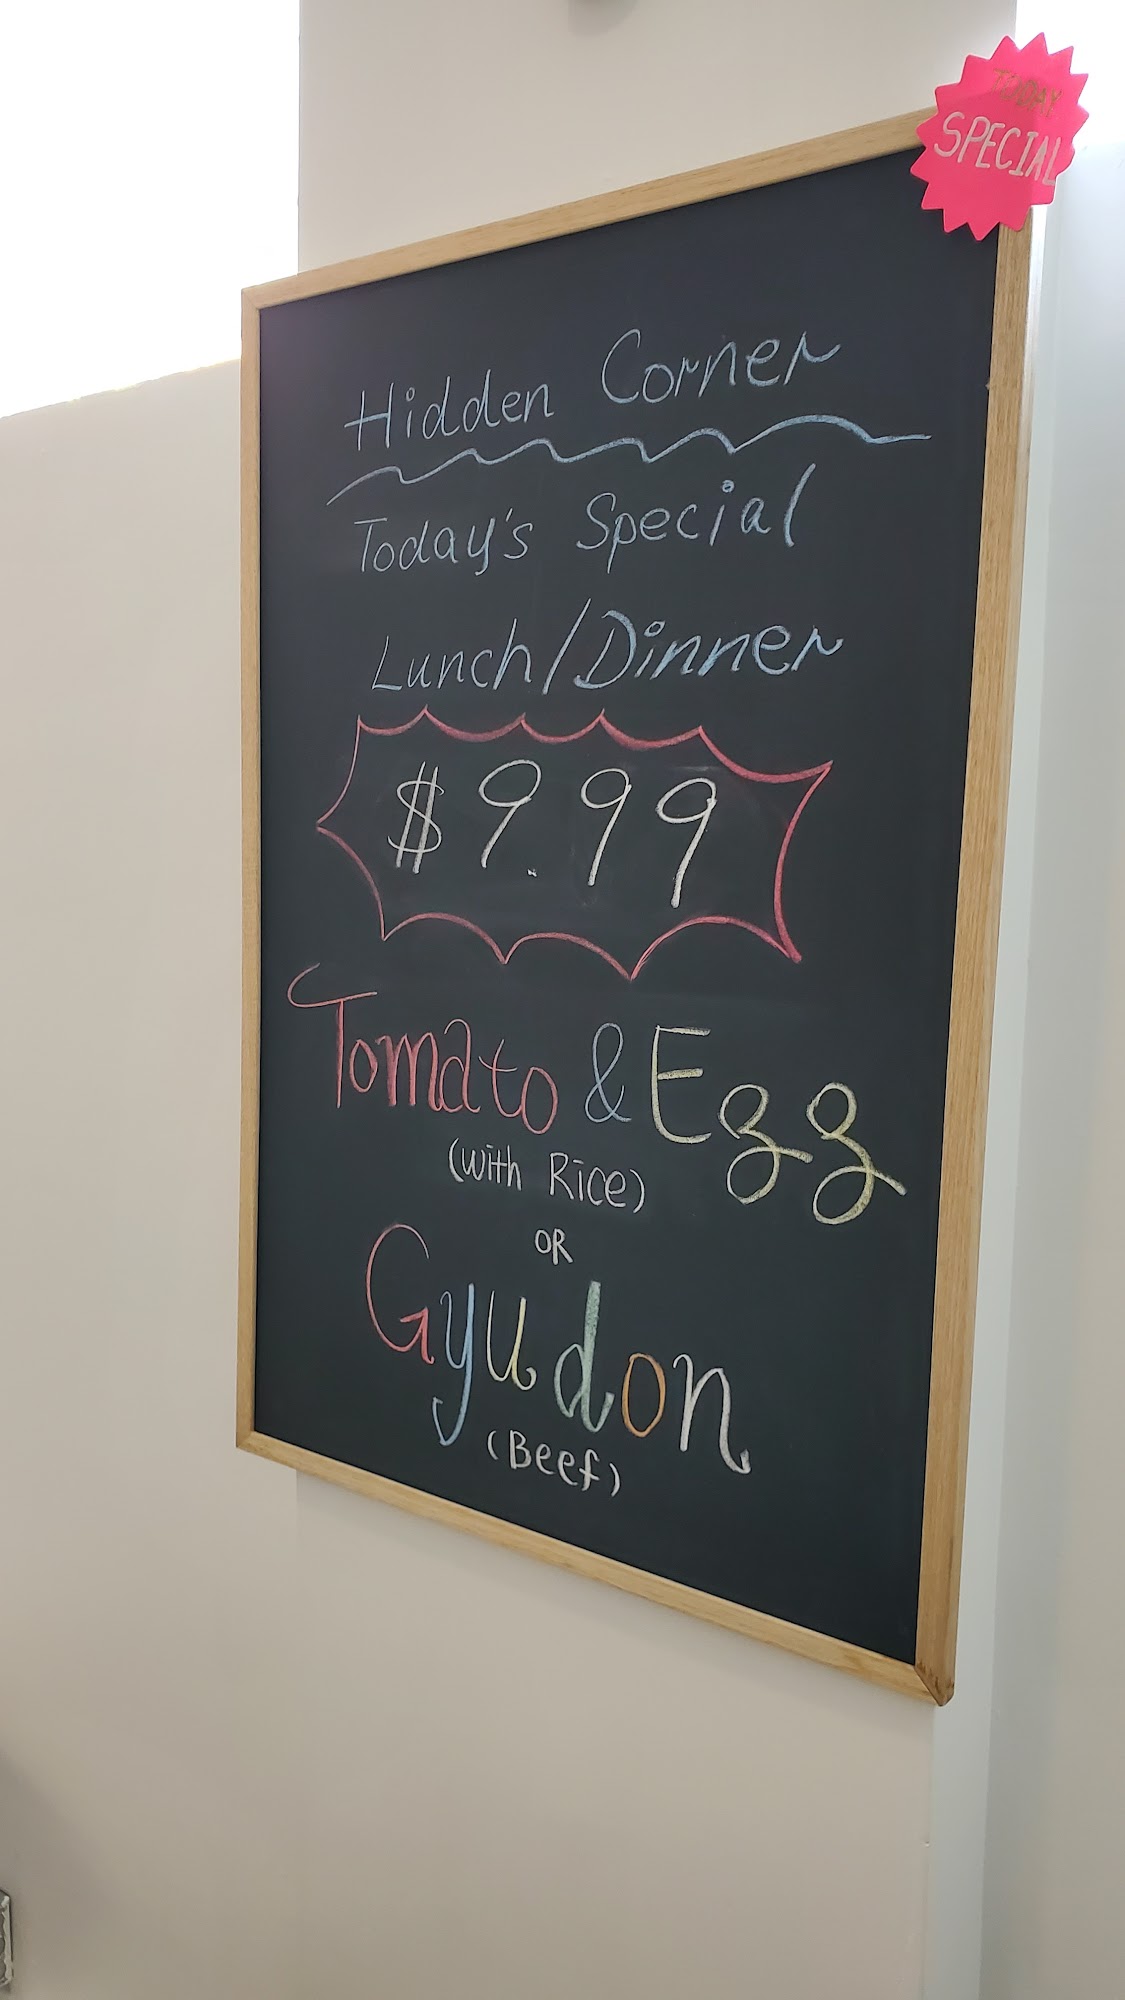 TODAY
SPECIAL
Hidden Corner
Today's Special
Lunch/Dinner
$9.99
Tomato & Egg
(with Rice)
OR
Gyudon
(Beef)